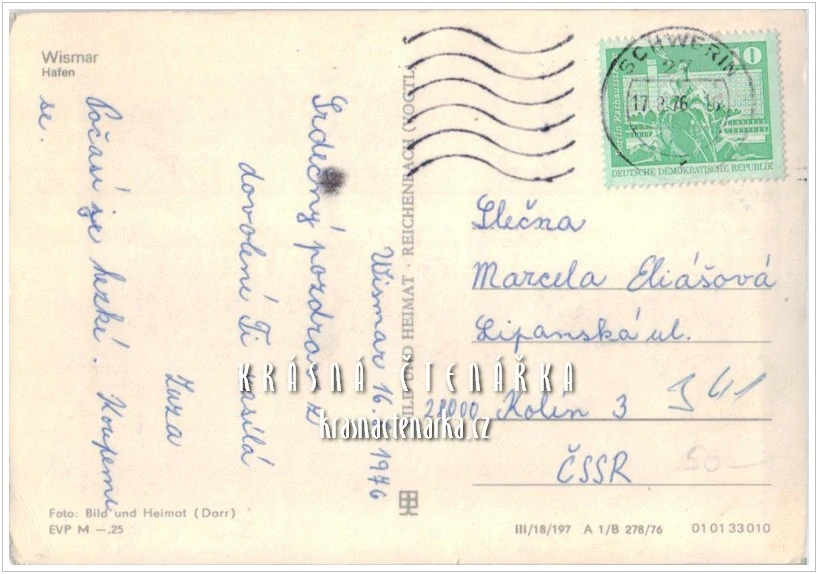 Wismar
Hafen
Wismar 16. 1976
Srdečný pozdrav z
dovolené Ti zasílá
Zuza
Počasí je hezké. Koupeme
se.
BILD UND HEIMAT · REICHENBACH (VOGTL
SCHWERIN
17.8.76
10
DEUTSCHE DEMOKRATISCHE REPUBLIK
Slečna
Marcela Eliášová
Lipanská ul.
28000 Kolín 3
ČSSR
341
50—
KRÁSNÁ ČTENÁŘKA
krasnactenarka.cz
Foto: Bild und Heimat (Darr)
EVP M —.25
III/18/197 A 1/B 278/76 01 01 33 010